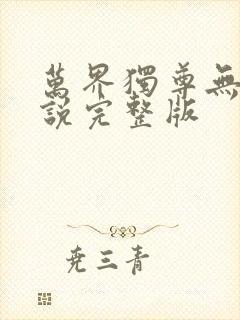 萬界獨尊無
説完整版
尭三青